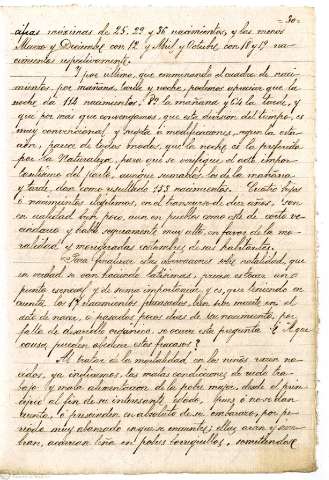 = 30 =
cifras máximas de 25, 22 y 36 nacimientos, y las menos
Marzo y Diciembre con 12 y Abril y Octubre con 18 y 19 na-
cimientos respectivamente.
Y por último, que examinando el cuadro de naci-
mientos, por mañana, tarde y noche, podemos apreciar que la
noche dá 114 nacimientos: 80 la mañana y 63 la tarde, y
que por mas que convengamos, que esta division del tiempo, es
muy convencional y sujeta á modificaciones, segun la esta-
ción, parece de todos modos, que la noche es la preferida
por la Naturaleza, para que se verifique el acto impor-
tantísimo del parto, aunque sumados los de la mañana
y tarde, dan como resultado 143 nacimientos. Cuatro hijos
ó nacimientos ilegítimos, en el transcurso de diez años, son
en realidad bien poco, aun en pueblo como este de corto ve-
cindario y habla seguramente muy alto, en favor de la mo-
ralidad y morigeradas costumbres de sus habitantes.
Para finalizar estas observaciones sobre natalidad, que
en verdad se van haciendo latísimas, preciso es tocar un
punto esencial y de suma importancia, y es, que teniendo en
cuenta los nacimientos fracasados, bien sobre muerte en el
acto de nacer, ó pasados pocos dias de su nacimiento, por
falta de desarrollo orgánico, se ocurre esta pregunta ¿A que
causa, pueden obedecer estos fracasos?
Al tratar de la mortalidad, en los niños recien na-
cidos, ya indicamos, las malas condiciones de rudo tra-
bajo y mala alimentacion de la pobre mujer, desde el prin-
cipio al fin de su interesante estado, pues ó no se dan
cuenta, ó prescinden en absoluto de su embarazo, por pe-
ríodo muy abanzado en que se encuentren; ellas aran y ca-
ban, acarrean leña en pobres borriquillos, sometiendose